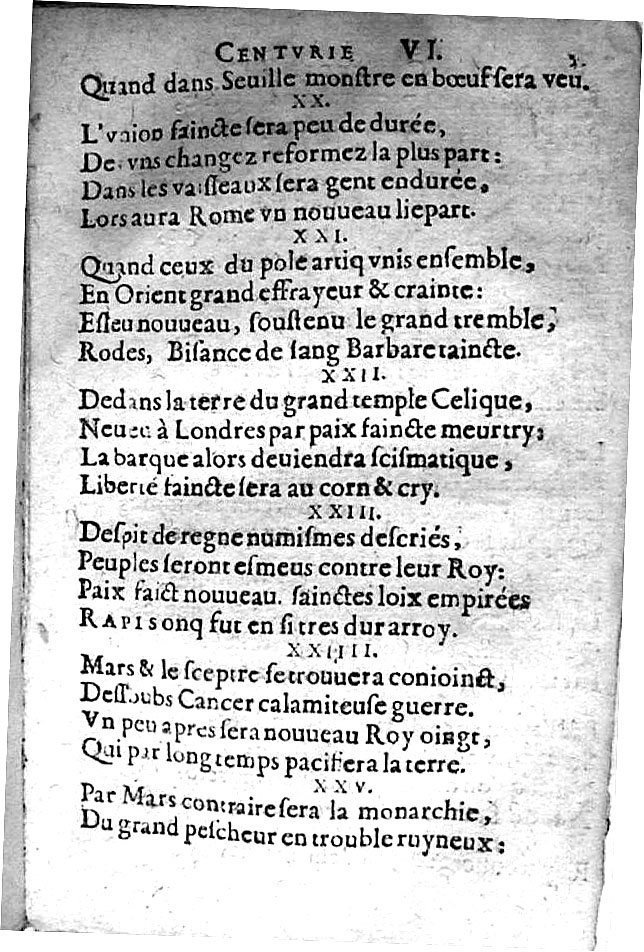 CENTVRIE VI.
Quand dans Seuille monſtre en bœuf ſera veu.
XX.
L'vnion faincte ſera peu de durée,
Des vns changez reformez la plus part:
Dans les vaiſſeaux ſera gent endurée,
Lors aura Rome vn nouueau liepart.
XXI.
Quand ceux du pole artiq vnis enſemble,
En Orient grand effrayeur & crainte:
Eſleu nouueau, ſouſtenu le grand tremble,
Rodes, Biſance de ſang Barbare taincte.
XXII.
Dedans la terre du grand temple Celique,
Neueu à Londres par paix faincte meurtry:
La barque alors deuiendra ſciſmatique,
Liberté faincte ſera au corn & cry.
XXIII.
Deſpit de regne numiſmes deſcriés,
Peuples ſeront eſmeus contre leur Roy:
Paix faict nouueau. ſainctes loix empirées
RAPIS onq fut en ſi tres dur arroy.
XXIIII.
Mars & le ſceptre ſe trouuera conioinct,
Deſſoubs Cancer calamiteuſe guerre.
Vn peu apres ſera nouueau Roy oingt,
Qui par long temps pacifiera la terre.
XXV.
Par Mars contraire ſera la monarchie,
Du grand peſcheur en trouble ruyneux: